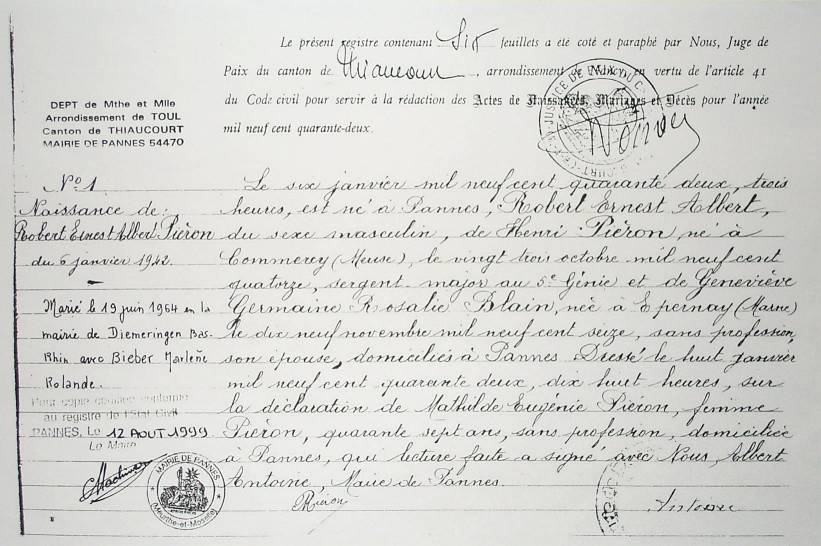 Le présent registre contenant Six feuillets a été coté et paraphé par Nous, Juge de
Paix du canton de Thiaucourt, arrondissement de en vertu de l'article 41
du Code civil pour servir à la rédaction des Actes de Naissances, Mariages et Décès pour l'année
mil neuf cent quarante-deux.
DEPT de Mthe et Mlle
Arrondissement de TOUL
Canton de THIAUCOURT
MAIRIE DE PANNES 54470
JUSTICE DE PAIX DU
N° 1
Naissance de:
Robert Ernest Albert Piéron
du 6 janvier 1942.
Marié le 19 juin 1964 en la
mairie de Diemeringen Bas-
Rhin avec Bieber Marlène
Rolande.
Pour copie conforme
au registre de l'Etat Civil
PANNES, Le 12 AOUT 1999
Le Maire
MAIRIE DE PANNES
(Meurthe-et-Moselle)
Le six janvier mil neuf cent quarante deux, trois
heures, est né à Pannes, Robert Ernest Albert,
du sexe masculin, de Henri Piéron, né à
Commercy (Meuse), le vingt trois octobre mil neuf cent
quatorze, sergent-major au 5e Génie et de Geneviève
Germaine Rosalie Blain, née à Epernay (Marne)
le dix neuf novembre mil neuf cent seize, sans profession,
son épouse, domiciliés à Pannes. Dressé le huit janvier
mil neuf cent quarante deux, dix huit heures, sur
la déclaration de Mathilde Eugénie Piéron, femme
Piéron, quarante sept ans, sans profession, domiciliée
à Pannes, qui lecture faite a signé avec Nous, Albert
Antoine, Maire de Pannes.
Piéron
Antoine